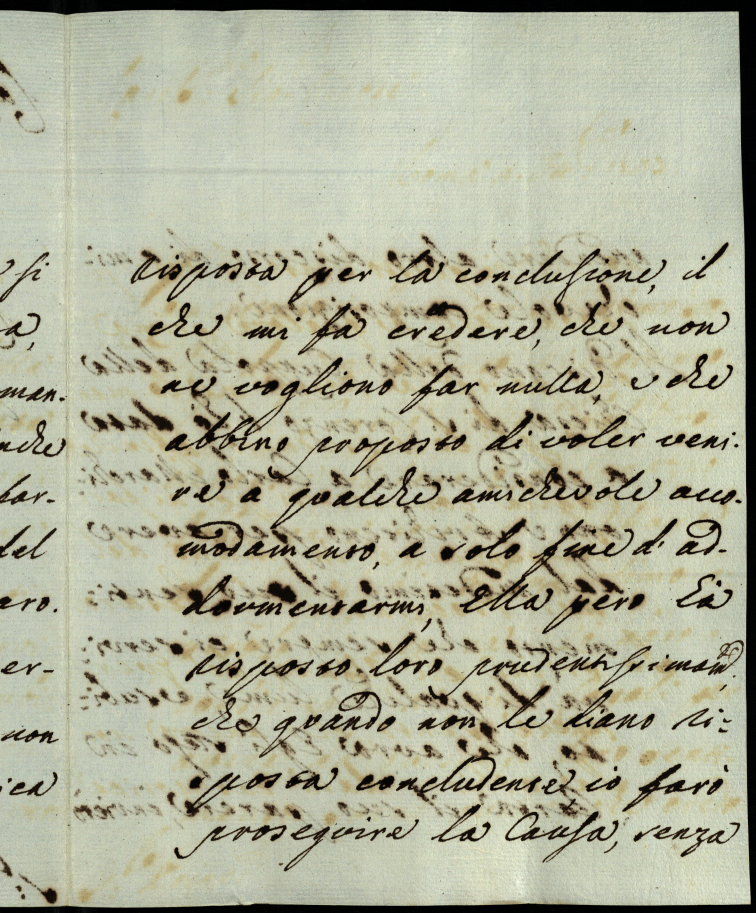 risposta per la conclusione, il
che mi fa credere, che non
ne vogliono far nulla, e che
abbino proposto di voler veni-
re a qualche amichevole acco-
modamento, a solo fine d'ad-
dormentarmi, Ella però hà
risposto loro prudentissimam.te
che quando non le diano ri-
posta concludente io farò
proseguire la Causa, senza